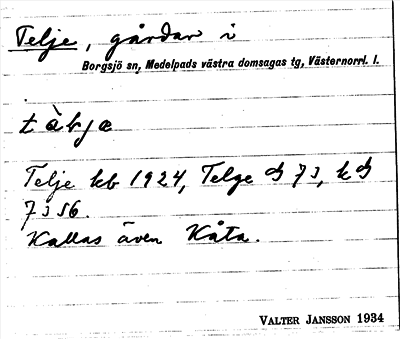 Telje, gårdar i
Borgsjö sn, Medelpads västra domsagas tg, Västernorrl. l.
Telje kb 1924, Telge
Kallas även Kåta.
VALTER JANSSON 1934